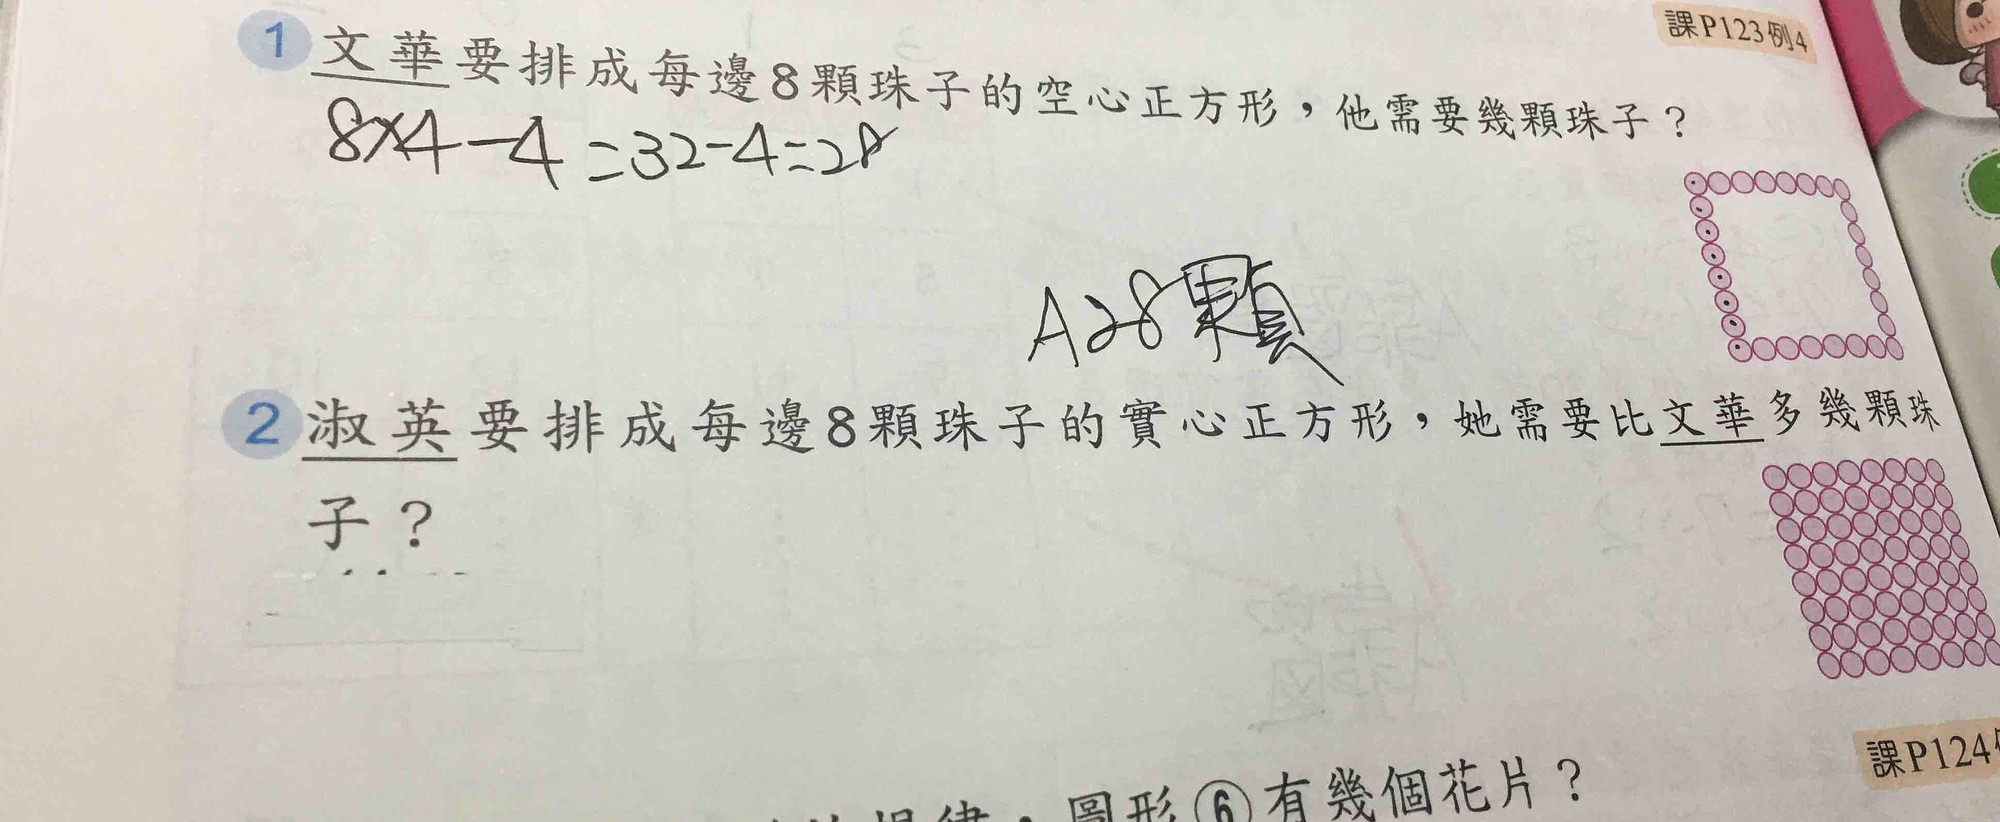 課P123例4
1 文華要排成每邊8顆珠子的空心正方形，他需要幾顆珠子？
8×4-4=32-4=28
A28顆
2 淑英要排成每邊8顆珠子的實心正方形，她需要比文華多幾顆珠
子？
課P124
規律，圖形⑥有幾個花片？